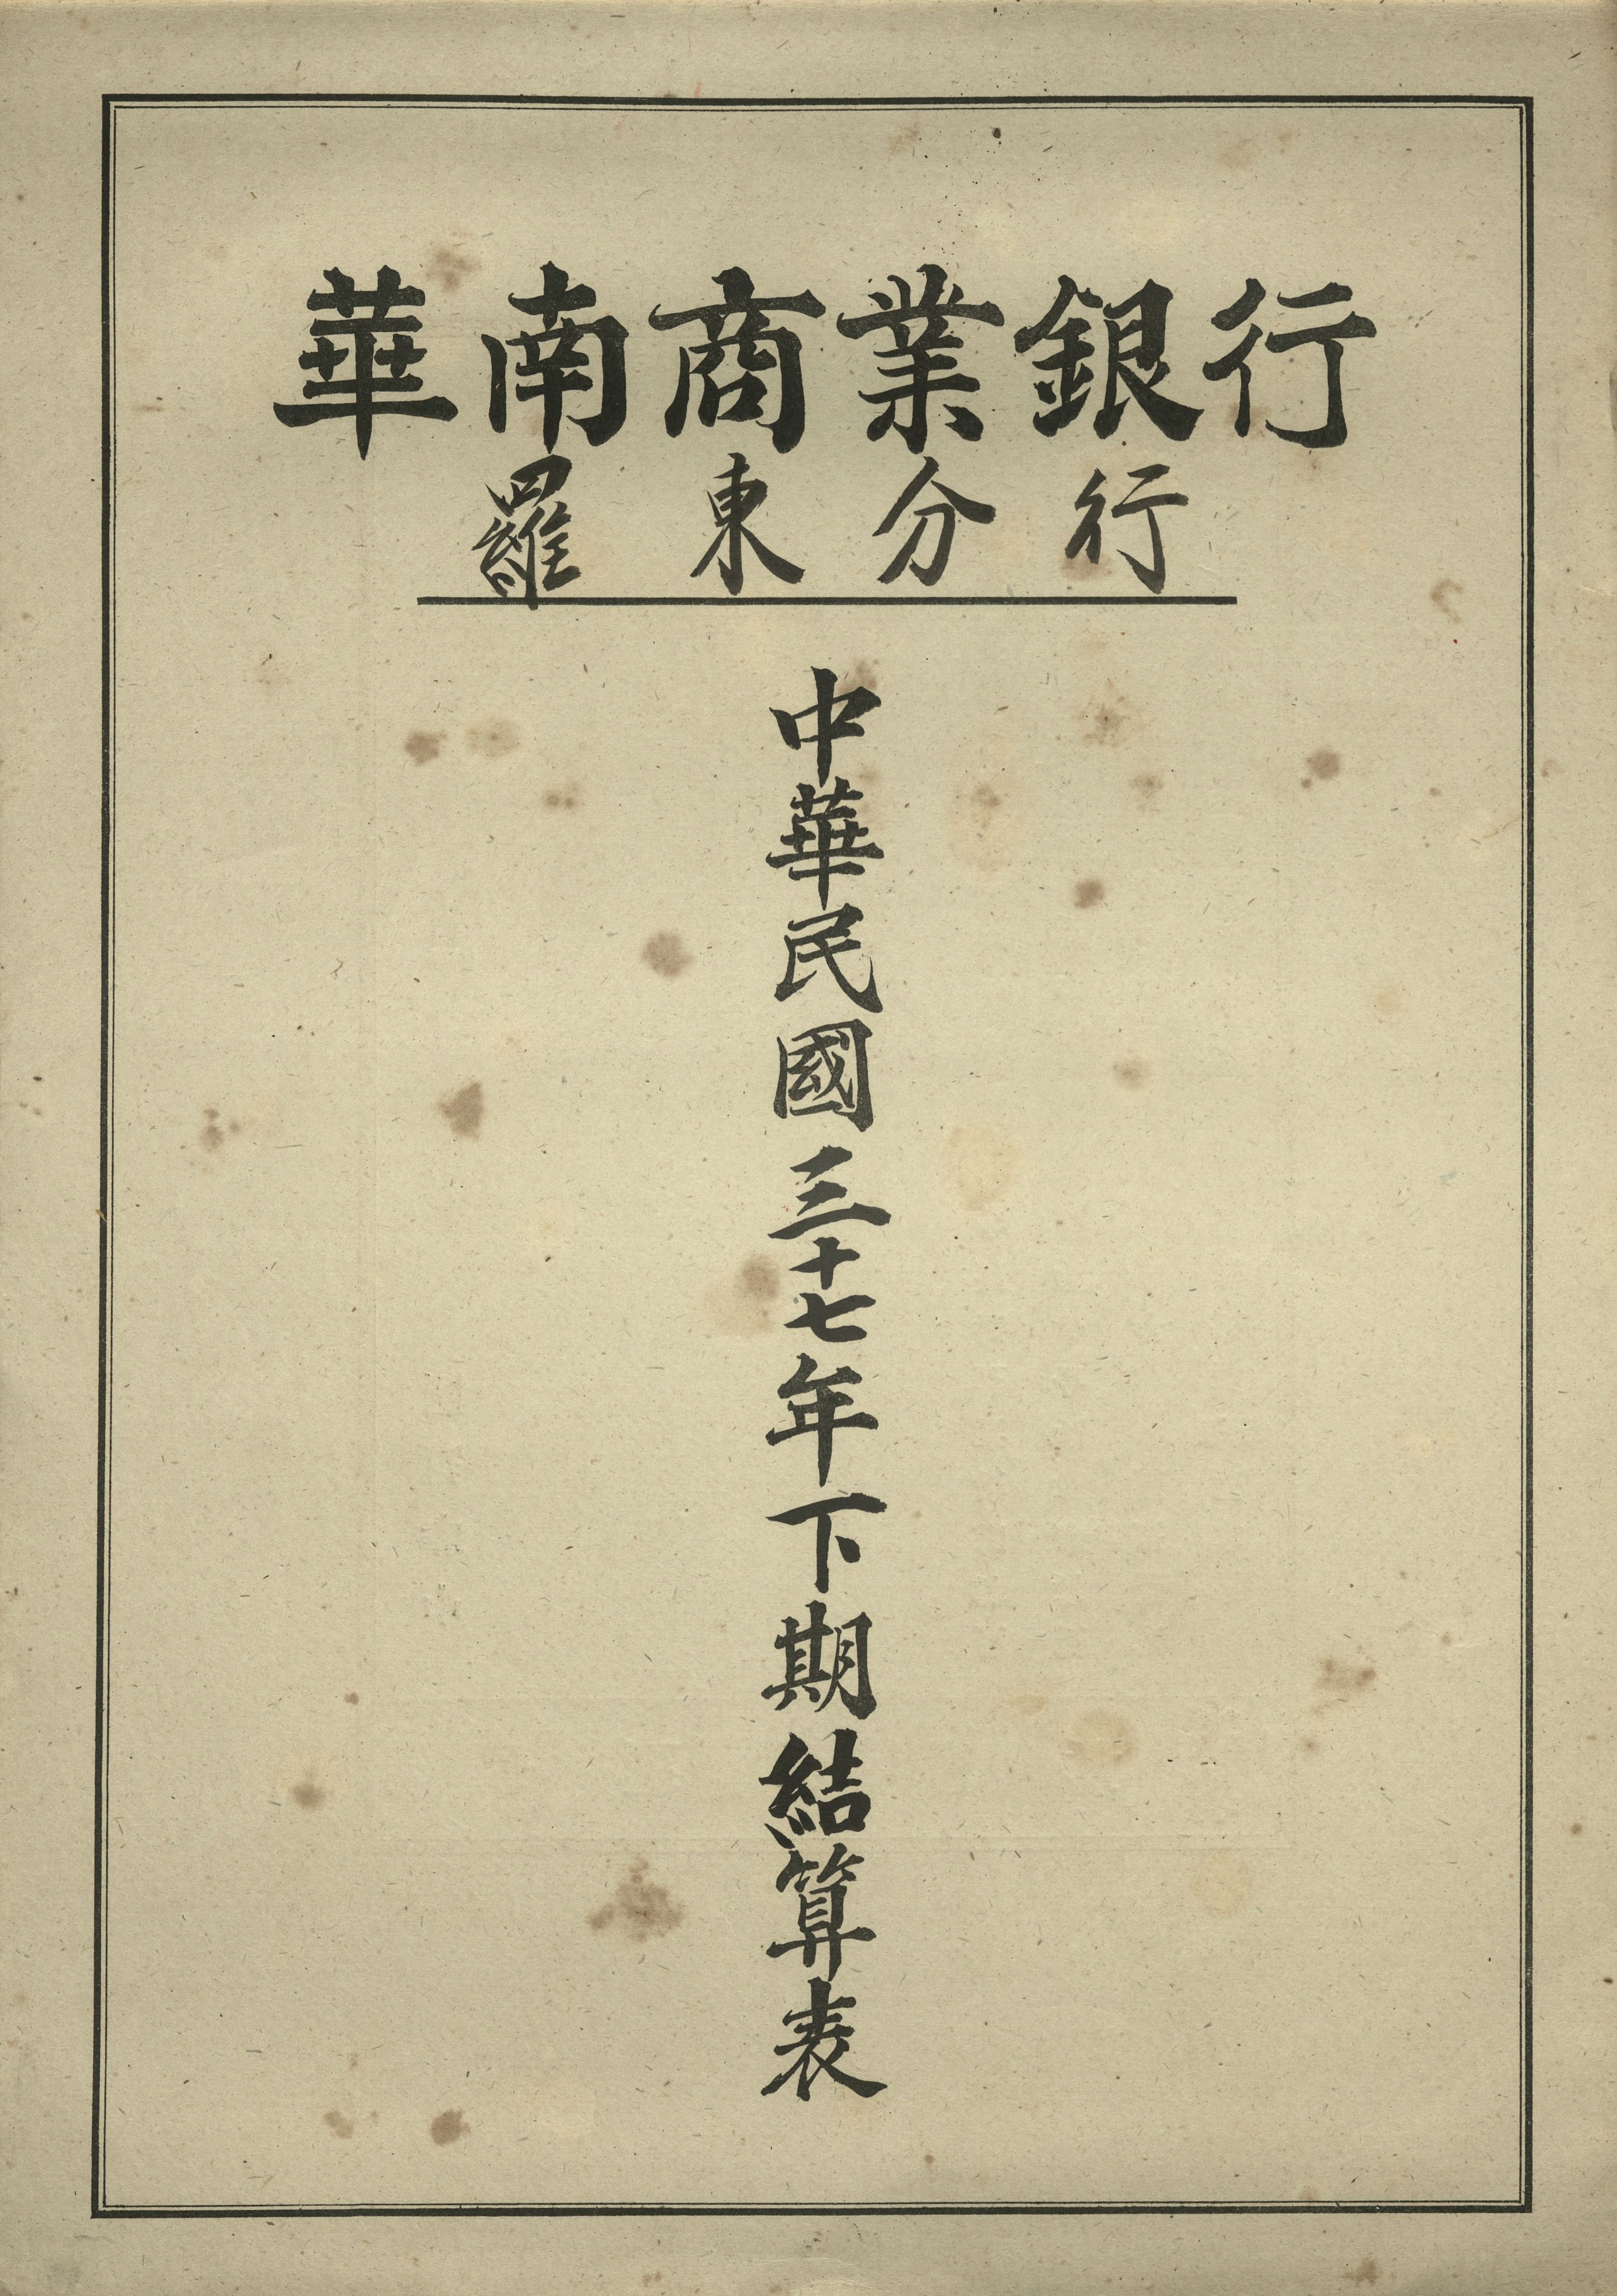 華南商業銀行
羅東分行
中華民國三十七年下期結算表